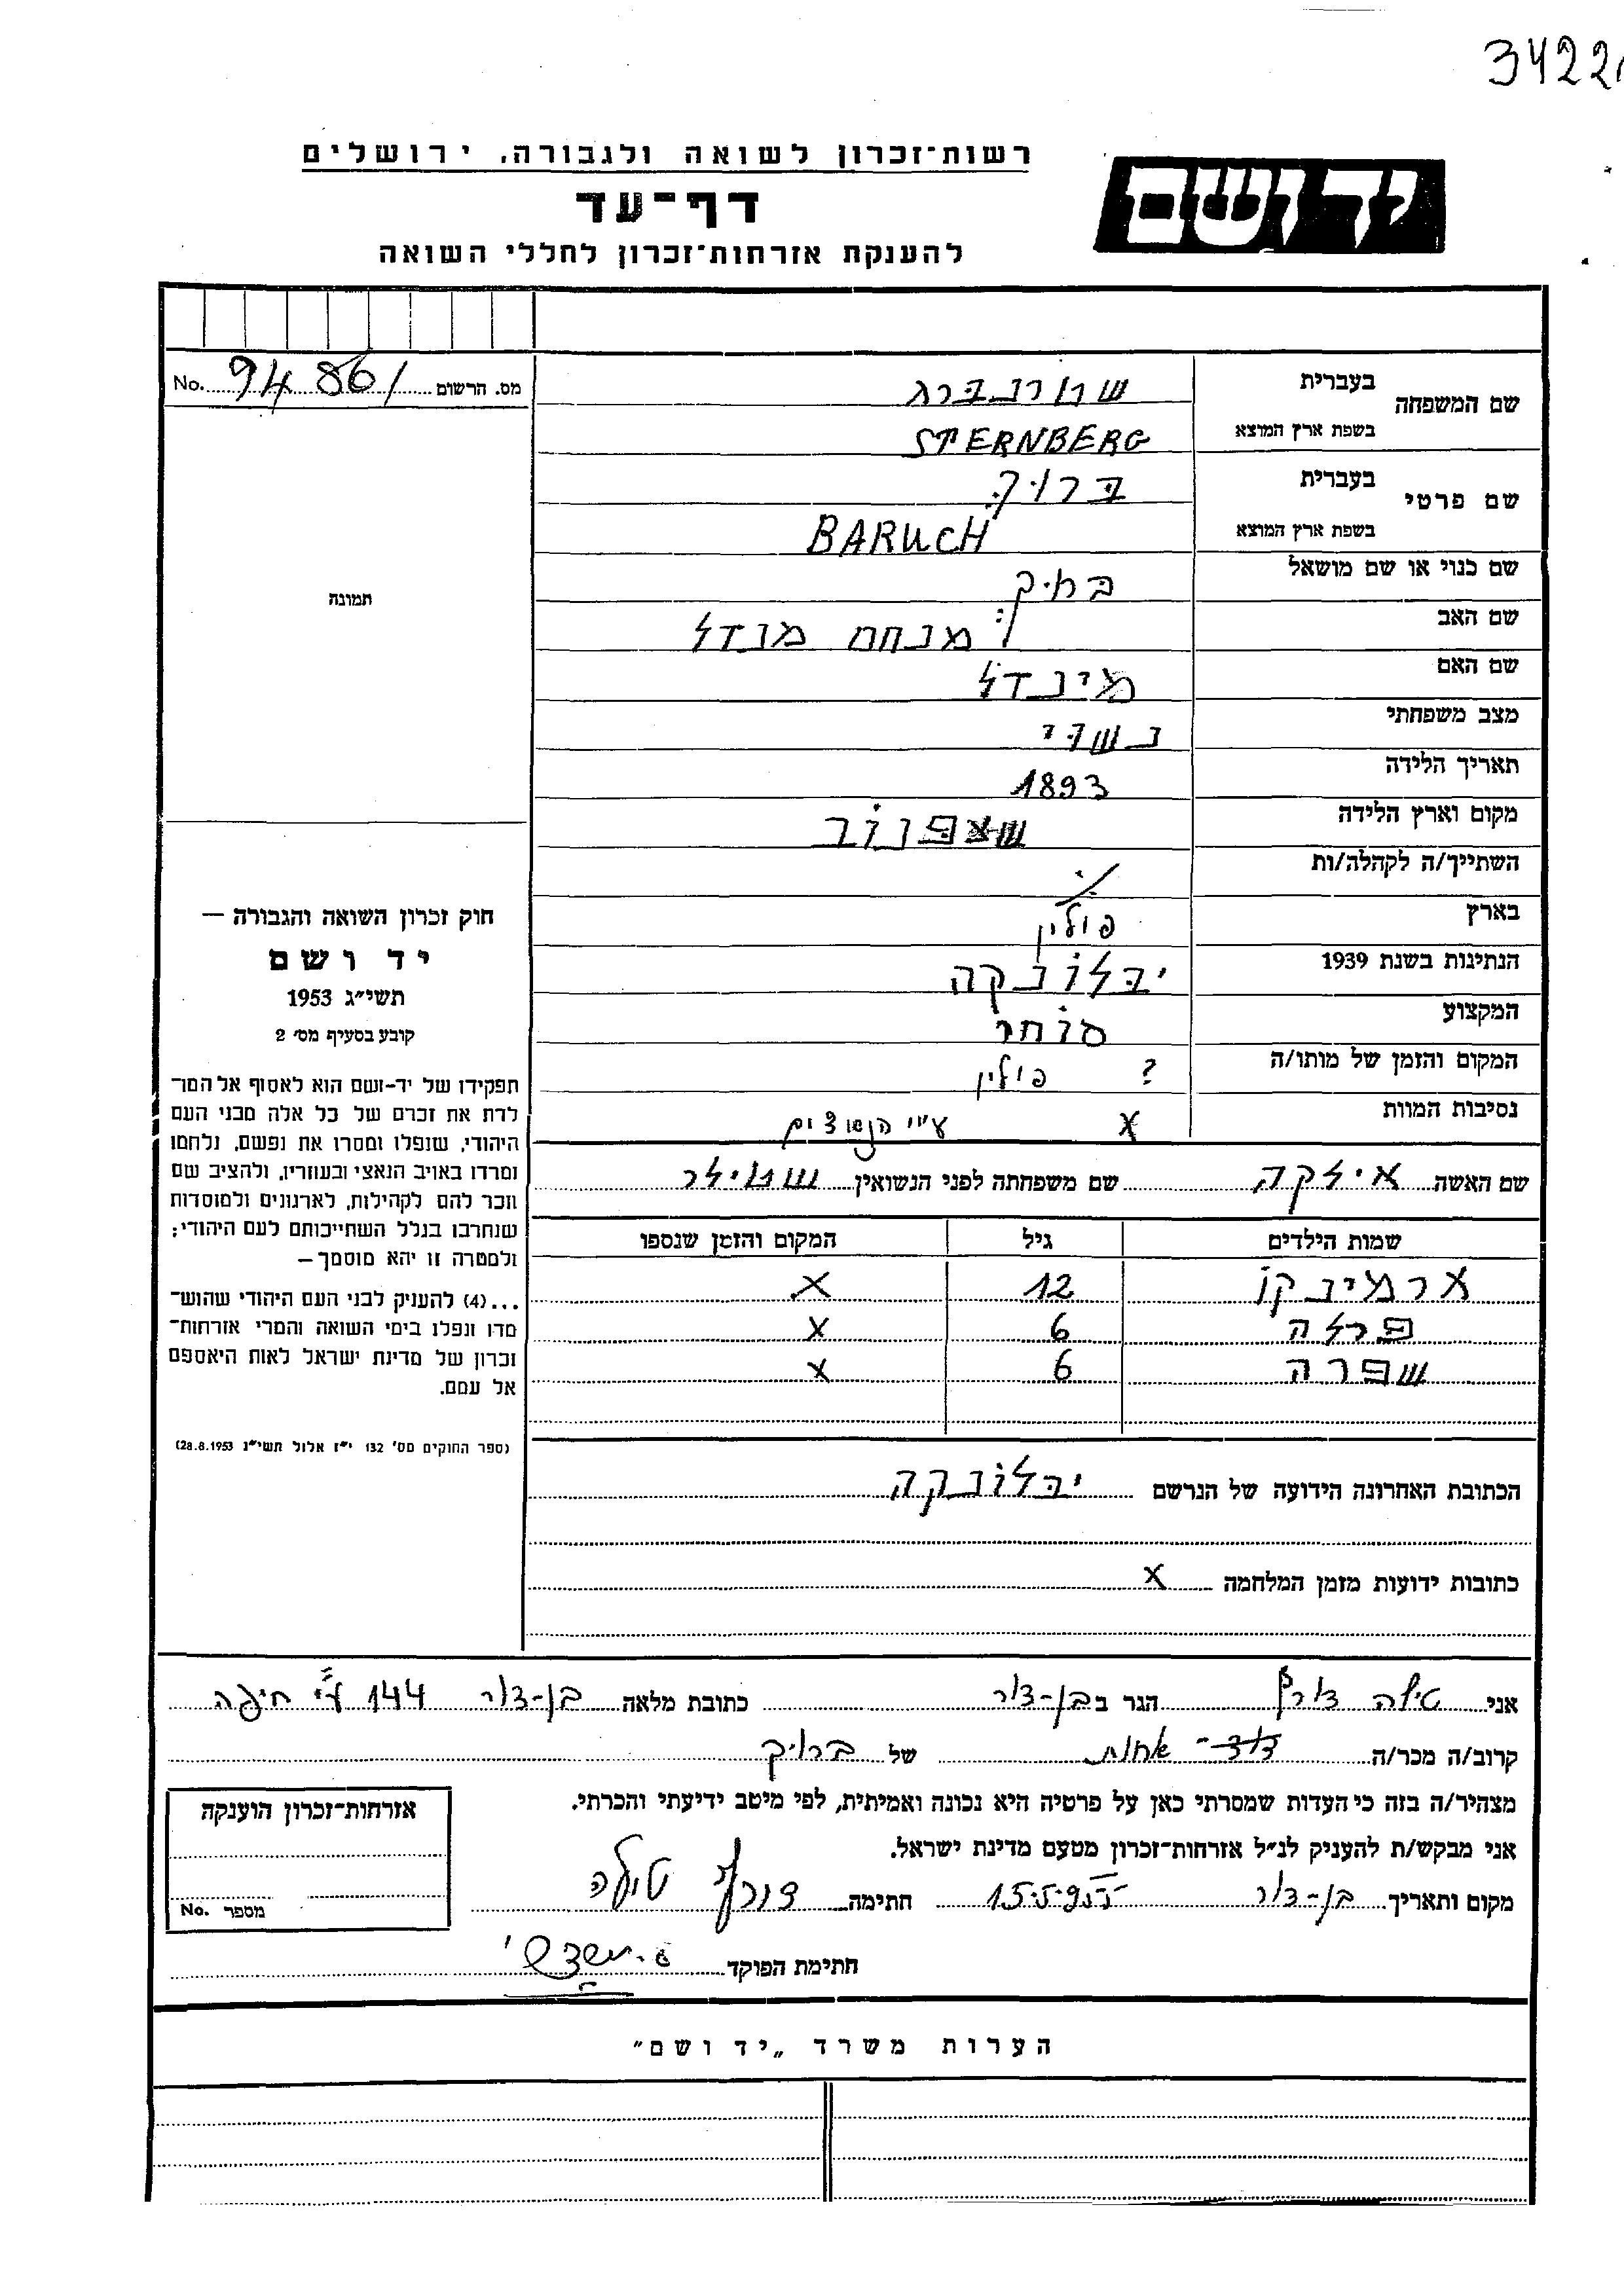 3422
רשות־זכרון לשואה ולגבורה, ירושלים
יד ושם
דף־עד
להענקת אזרחות־זכרון לחללי השואה
מס. הרשום 94861 No.
שם המשפחה בעברית שטרנברג
בשפת ארץ המוצא STERNBERG
שם פרטי בעברית ברוך
בשפת ארץ המוצא BARUCH
שם כנוי או שם מושאל
שם האב מנחם מנדל
שם האם מינדל
מצב משפחתי נשוי
תאריך הלידה 1893
מקום וארץ הלידה
השתייך/ה לקהלה/ות
בארץ פולין
הנתינות בשנת 1939 יבלונקה
המקצוע סוחר
המקום והזמן של מותו/ה ? פולין
נסיבות המוות x ע"י הנאצים
תמונה
חוק זכרון השואה והגבורה —
יד ושם
תשי״ג 1953
קובע בסעיף מס׳ 2
תפקידו של יד-ושם הוא לאסוף אל המו־
לדת את זכרם של כל אלה מבני העם
היהודי, שנפלו ומסרו את נפשם, נלחמו
ומרדו באויב הנאצי ובעוזריו, ולהציב שם
וזכר להם לקהילות, לארגונים ולמוסדות
שנחרבו בגלל השתייכותם לעם היהודי;
ולמטרה זו יהא מוסמך –
...(4) להענין לבני העם היהודי שהוש־
מדו ונפלו בימי השואה והמרי אזרחות־
זכרון של מדינת ישראל לאות היאספם
אל עמם.
(ספר החוקים מס׳ 132 י״ז אלול תשי״ג 28.8.1953)
שם האשה אילקה שם משפחתה לפני הנשואין
שמות הילדים גיל המקום והזמן שנספו
ארמינקו 12 x
פרלה 6 x
שפרה 6 x
הכתובת האחרונה הידועה של הנרשם יבלונקה
כתובות ידועות מזמן המלחמה x
אני טילה דורף הגר ב בן-דור כתובת מלאה בן-דור 144 ע"י חיפה
קרוב/ה מכר/ה אחות של ברוך
מצהיר/ה בזה כי העדות שמסרתי כאן על פרטיה היא נכונה ואמיתית, לפי מיטב ידיעתי והכרתי.
אני מבקש/ת להעניק לנ״ל אזרחות־זכרון מטעם מדינת ישראל.
מקום ותאריך בן-דור חתימה דורף טילה
חתימת הפוקד
אזרחות־זכרון הוענקה
מספר No.
הערות משרד „יד ושם״